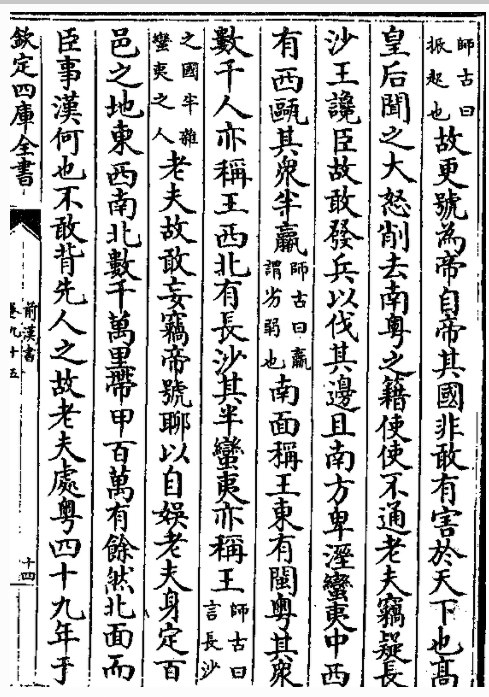 師古曰振起也故更號為帝自帝其國非敢有害於天下也髙
皇后聞之大怒削去南粤之籍使使不通老夫竊疑長
沙王讒臣故敢發兵以伐其邊且南方卑溼蠻夷中西
有西甌其衆半羸師古曰羸謂劣弱也南面稱王東有閩粤其衆
數千人亦稱王西北有長沙其半蠻夷亦稱王師古曰言長沙
之國半雜蠻夷之人老夫故敢妄竊帝號聊以自娱老夫身定百
邑之地東西南北數千萬里帶甲百萬有餘然北面而
臣事漢何也不敢背先人之故老夫處粤四十九年于
欽定四庫全書
前漢書
卷九十五
十四